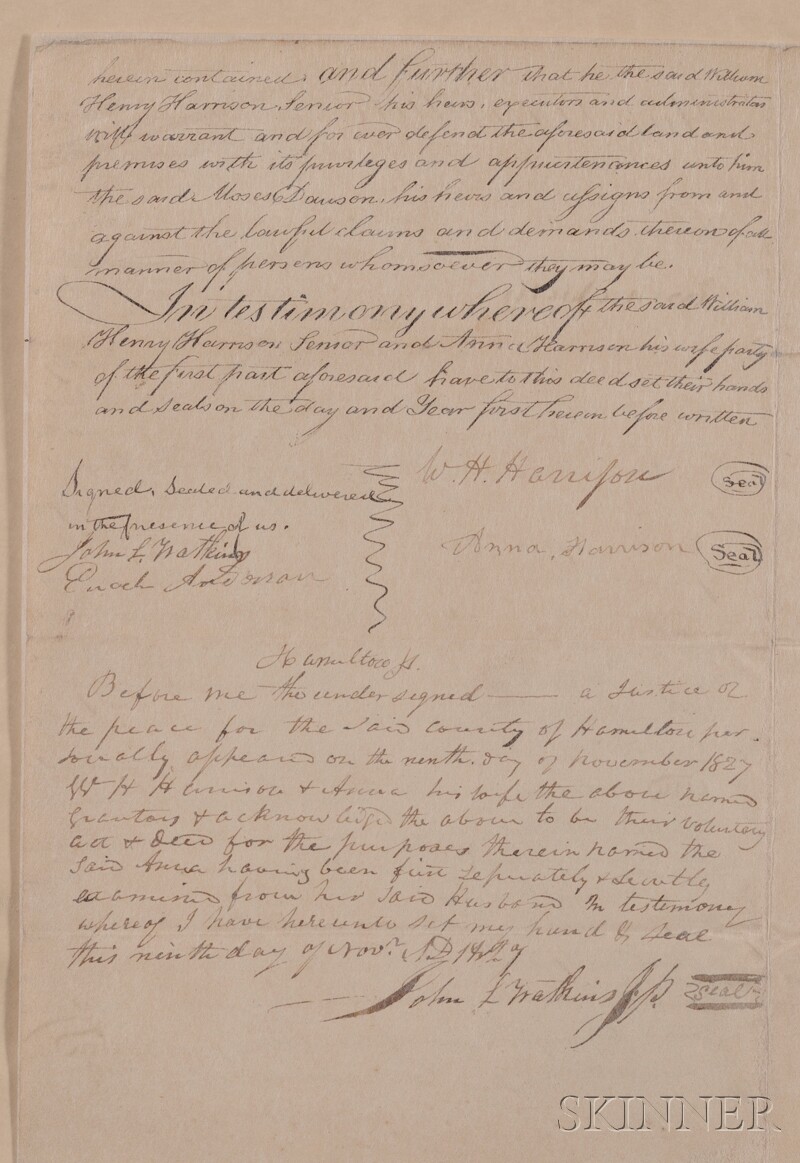 herein contained. and further that he the said William
Henry Harrison Senior his heirs, executors and administrators
will warrant and for ever defend the aforesaid land and
premises with its privileges and appurtenances unto him
the said Moses Dawson, his heirs and assigns from and
against the lawful claims and demands thereon of all
manner of persons whomsoever they may be.
In testimony whereof the said William
Henry Harrison Senior and Anna Harrison his wife party
of the first part aforesaid have to this deed set their hands
and seals on the day and Year first herein before written
W. H. Harrison Seal
Signed, Sealed and delivered
in the presence of us.
Anna, Harrison Seal
John L. Watkins
Enoch Anderson
Hamilton ss.
Before me the undersigned —— a Justice of
the peace for the said County of Hamilton per-
sonally appeared on the ninth day of November 1827
W H Harrison & Anna his wife the above named
Grantors & acknowledged the above to be their voluntary
act & Deed for the purposes therein named the
said Anna having been first seperately & secretly
examined from her said Husband In testimony
whereof I have hereunto set my hand & seal
this ninth day of Novr. AD 1827
John L Watkins J.P. seal
SKINNER